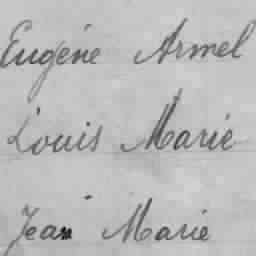 Eugène Armel
Louis Marie
Jean Marie